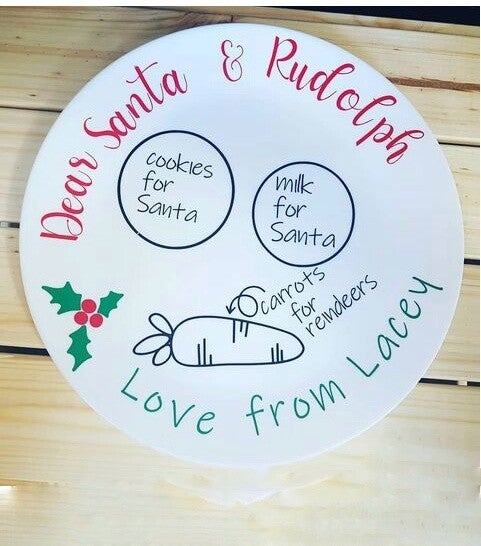 Dear Santa & Rudolph
cookies
for
Santa
milk
for
Santa
carrots
for
reindeers
Love from Lacey